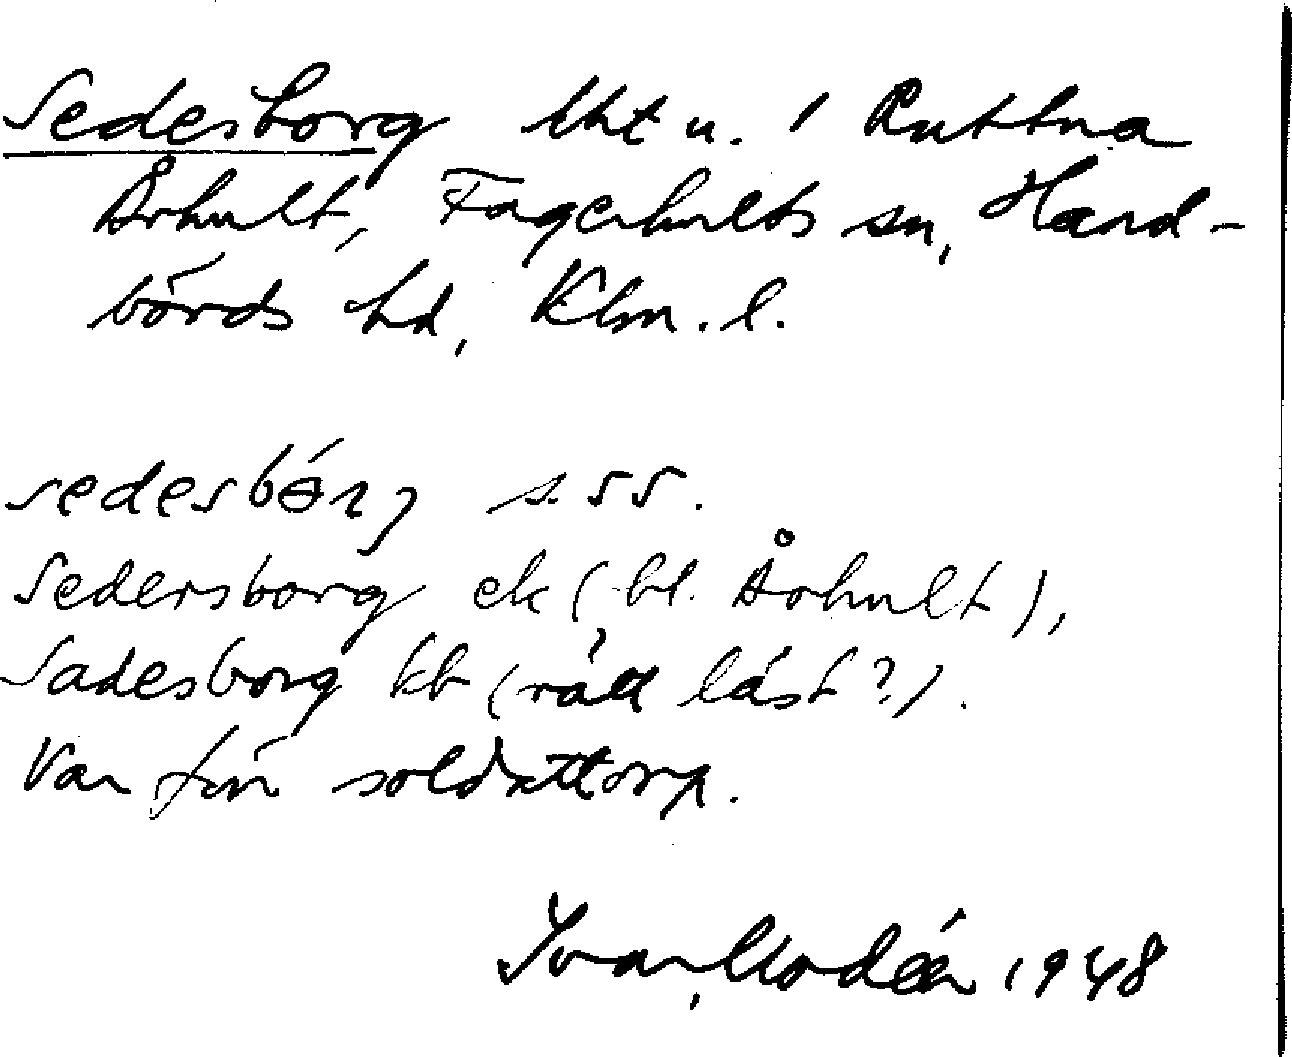 Sedesborg lht u. / Ruttna
Århult, Fagerhults sn, Hand-
börds hd, Klm. l.
sedesbórg s. ss.
Sedersborg ek (bl. Århult),
Sadesborg kb (rätt läst?).
Var förr soldattorp.
Ivar Modéer 1948